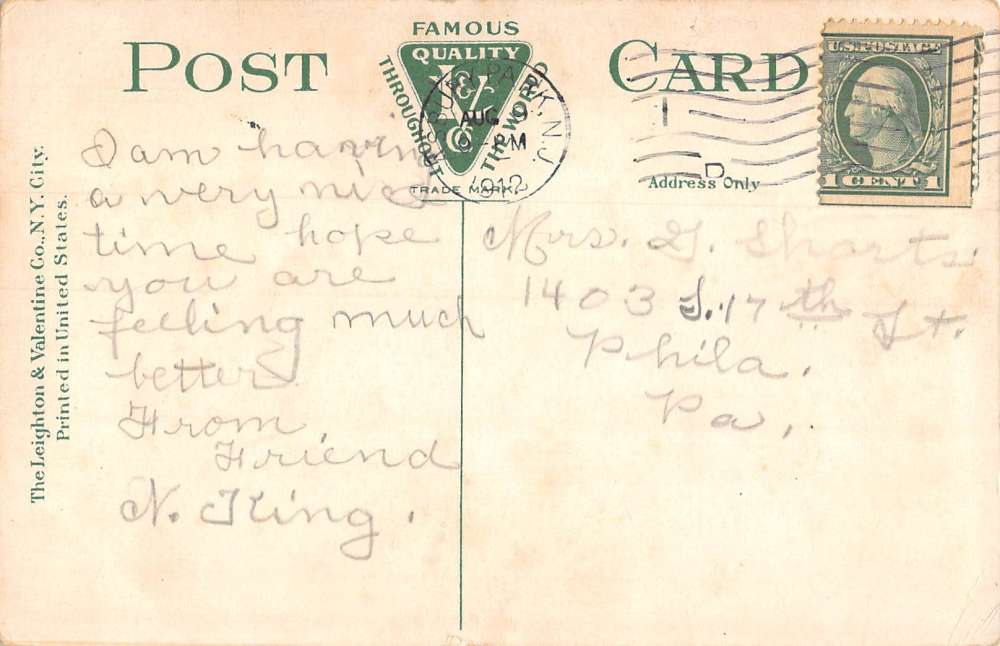 POST CARD
FAMOUS
QUALITY
THROUGHOUT
THE WORLD
L&V
Co
TRADE MARK.
PARK, N.J.
AUG 9
9-PM
1912
D
U.S. POSTAGE
1 CENT 1
Address Only
The Leighton & Valentine Co., N.Y. City.
Printed in United States.
I am having
a very nice
time hope
you are
feeling much
better.
From,
Friend
N. King.
Mrs. G.
1403 S. 17th St.
Phila.
Pa,